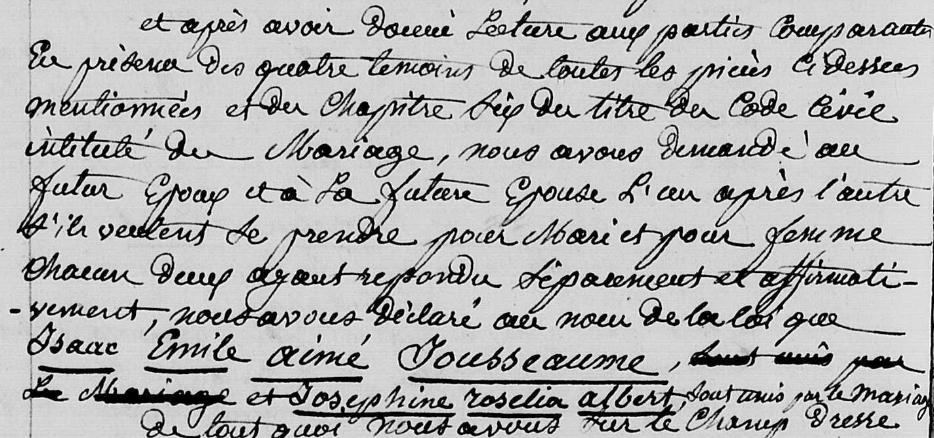 et après avoir donné Lecture aux parties Comparantes
En présence des quatre temoins de toutes les pièces Cidessus
mentionnées et du Chapitre Six du titre du Code Civil
intitulé du Mariage, nous avons demandé au
futur Epoux et à La future Epouse L'un après l'autre
s'ils veulent se prendre pour Mari et pour femme
Chacun deux ayant repondu Séparement et affirmati-
-vement, nous avons déclaré au nom de la loi que
Isaac Emile aimé Jousseaume, sont unis par
Le Mariage et Josephine roselia albert, Sont unis par le mariage
de tout quoi nous avons Sur le Champ Dresse